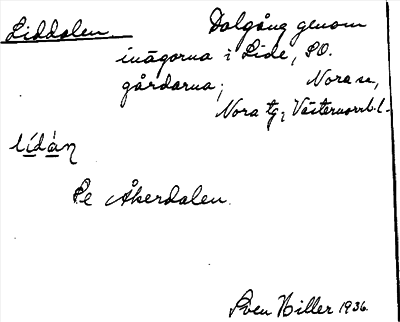 Liddalen Dalgång genom
inägorna i Lide, SO.
gårdarna; Nora sn,
Nora tg, Västernorrl. l.
lídàn
Se Åkerdalen.
Sven Hiller 1936.